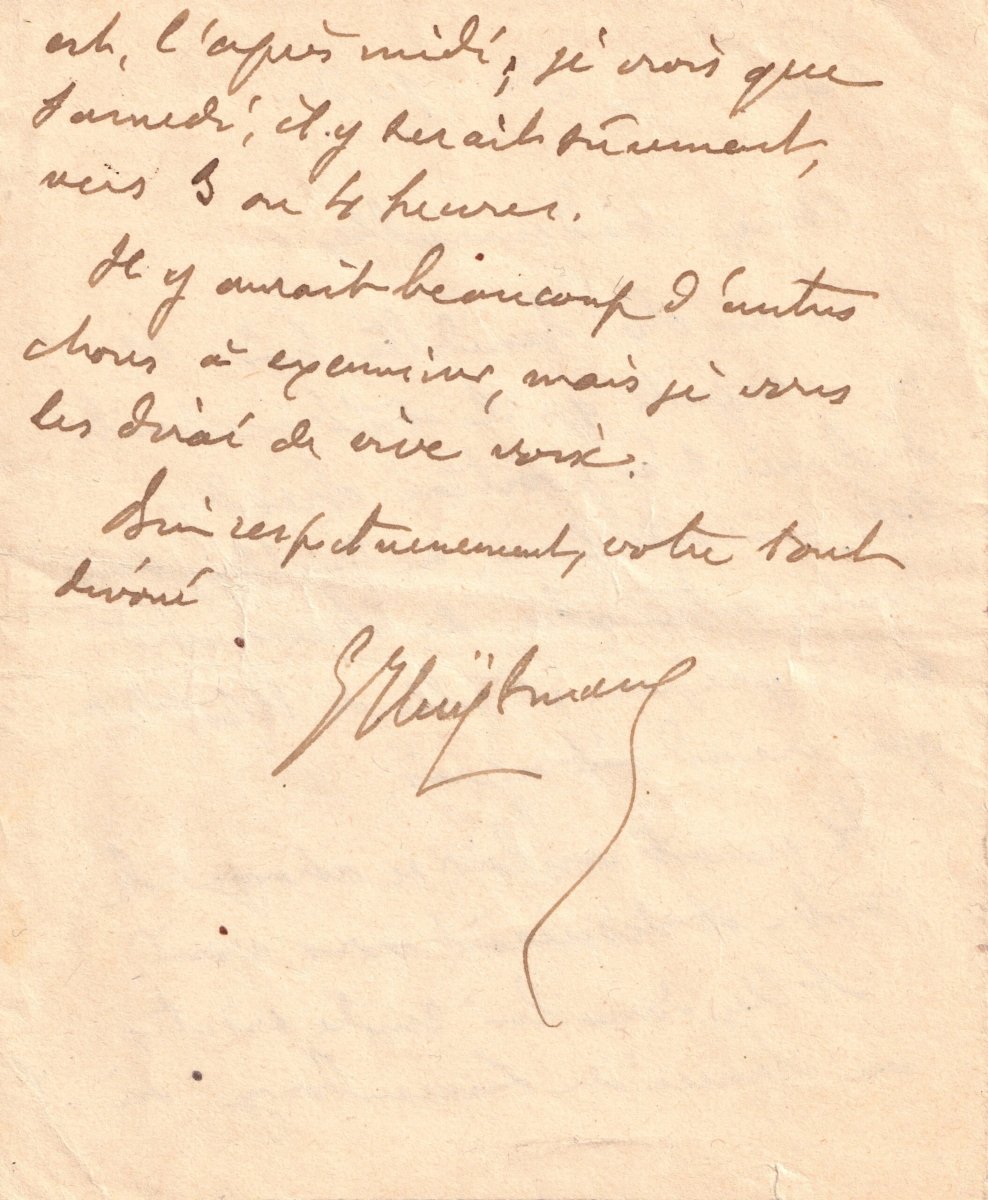 est, l'après midi; je crois que
samedi, il y serait sûrement,
vers 3 ou 4 heures.
Il y aurait beaucoup d'autres
choses à examiner, mais je vous
les dirai de vive voix.
Bien respectueusement, votre tout
dévoué
G Huÿsmans